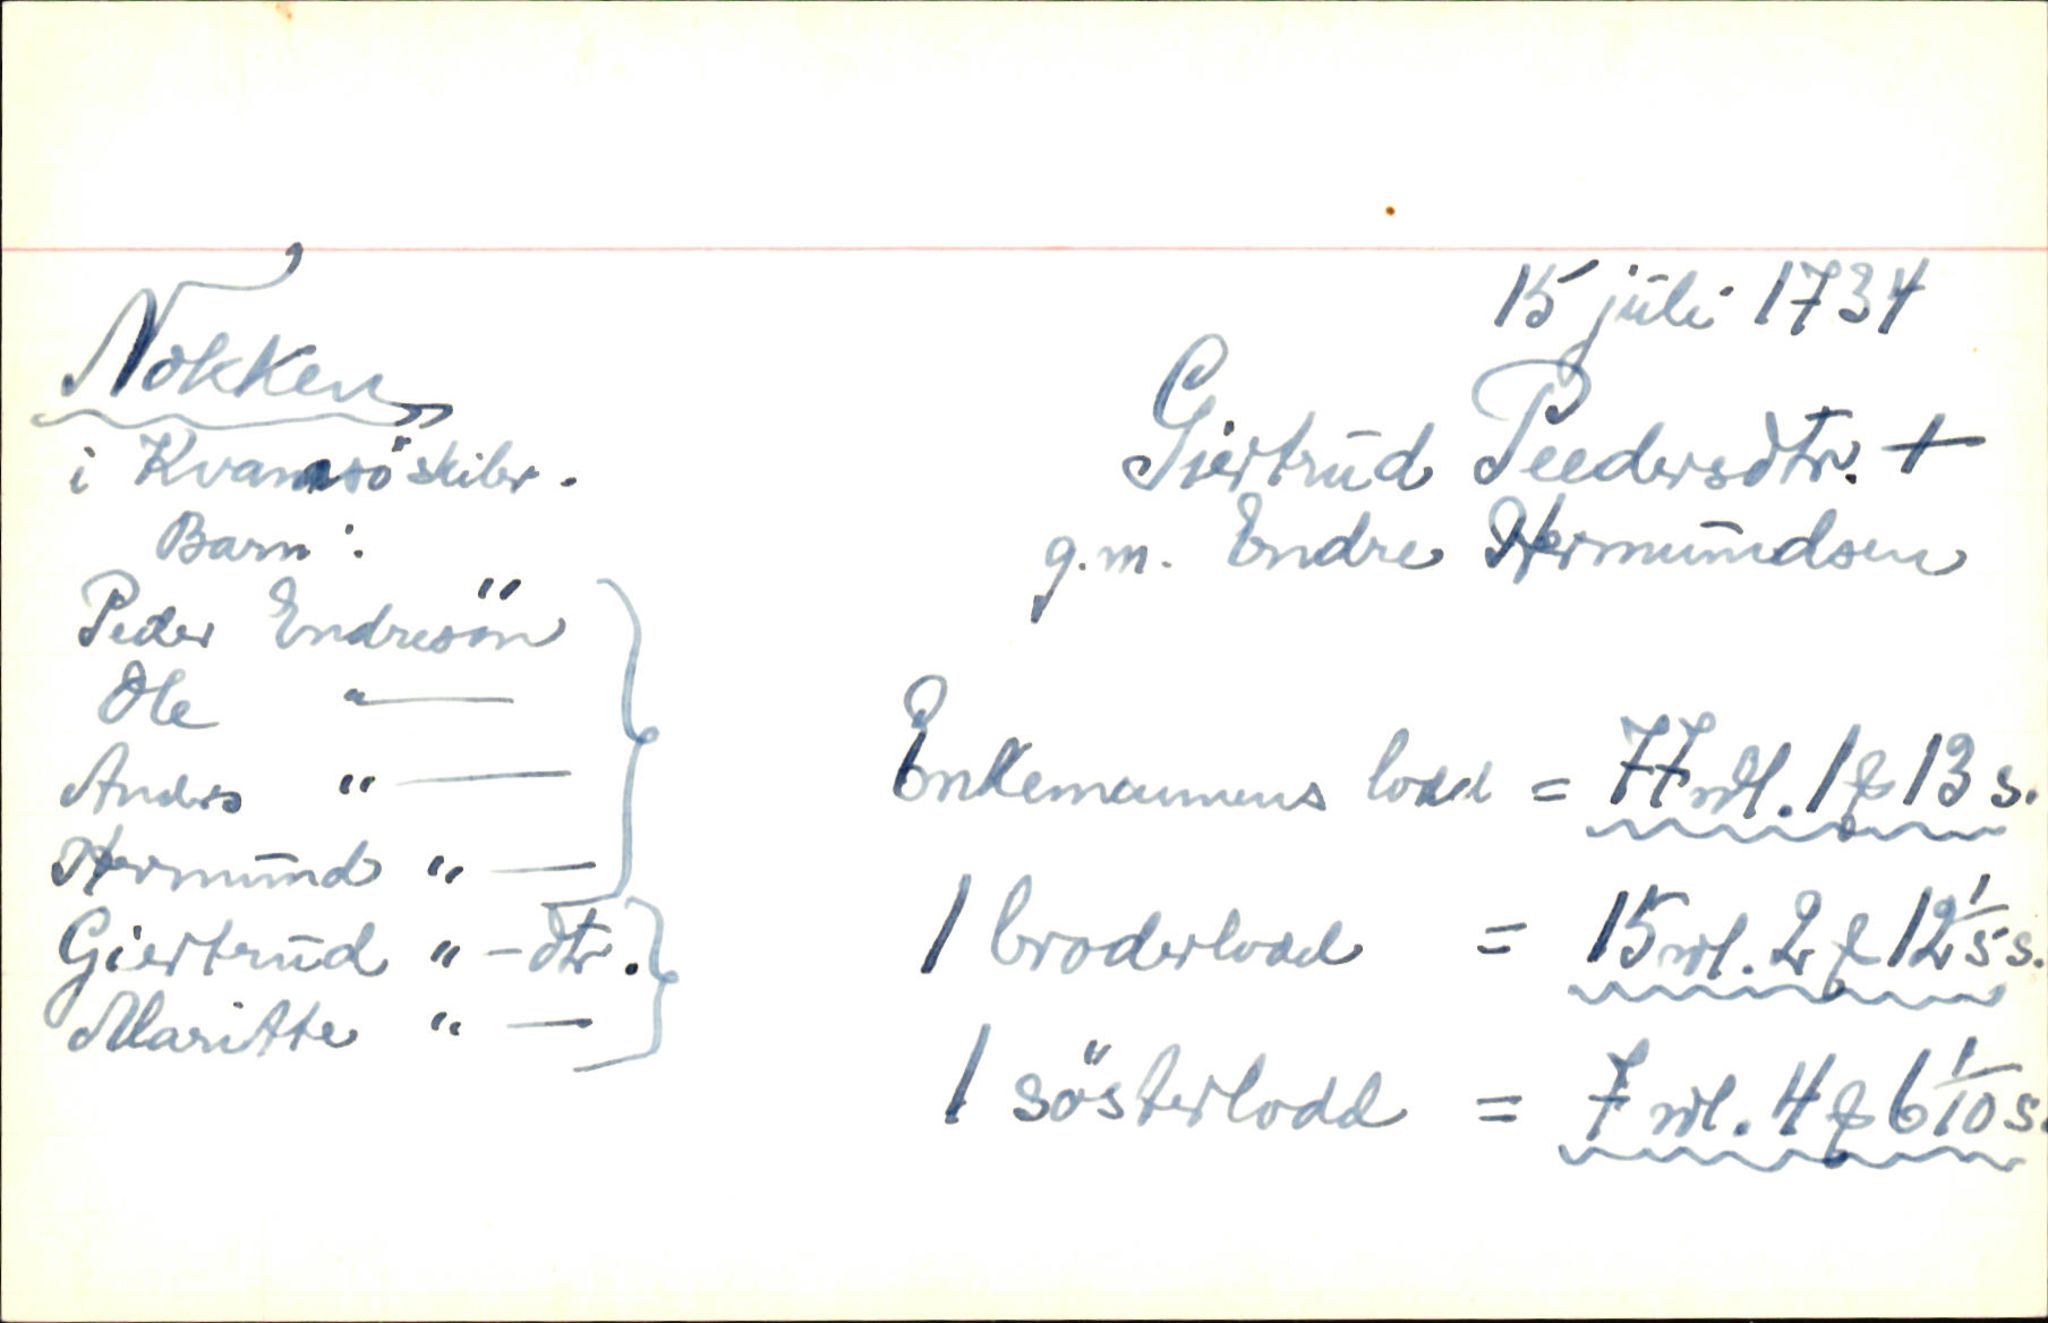 15 juli 1734
Nokken
i Kvamsö skibr.
Giertrud Peedersdtr. +
g.m. Endre Hermundsen
Barn:
Peder Endresön
Ole "—
Anders "—
Hermund "—
Giertrud " -dtr.
Maritte "—
Enkemannens lodd = 77 rdl. 1 ƒ 13 s.
1 broderlodd = 15 rdl. 2 ƒ 12 1/5 s.
1 sösterlodd = 7 rdl. 4 ƒ 6 1/10 s.